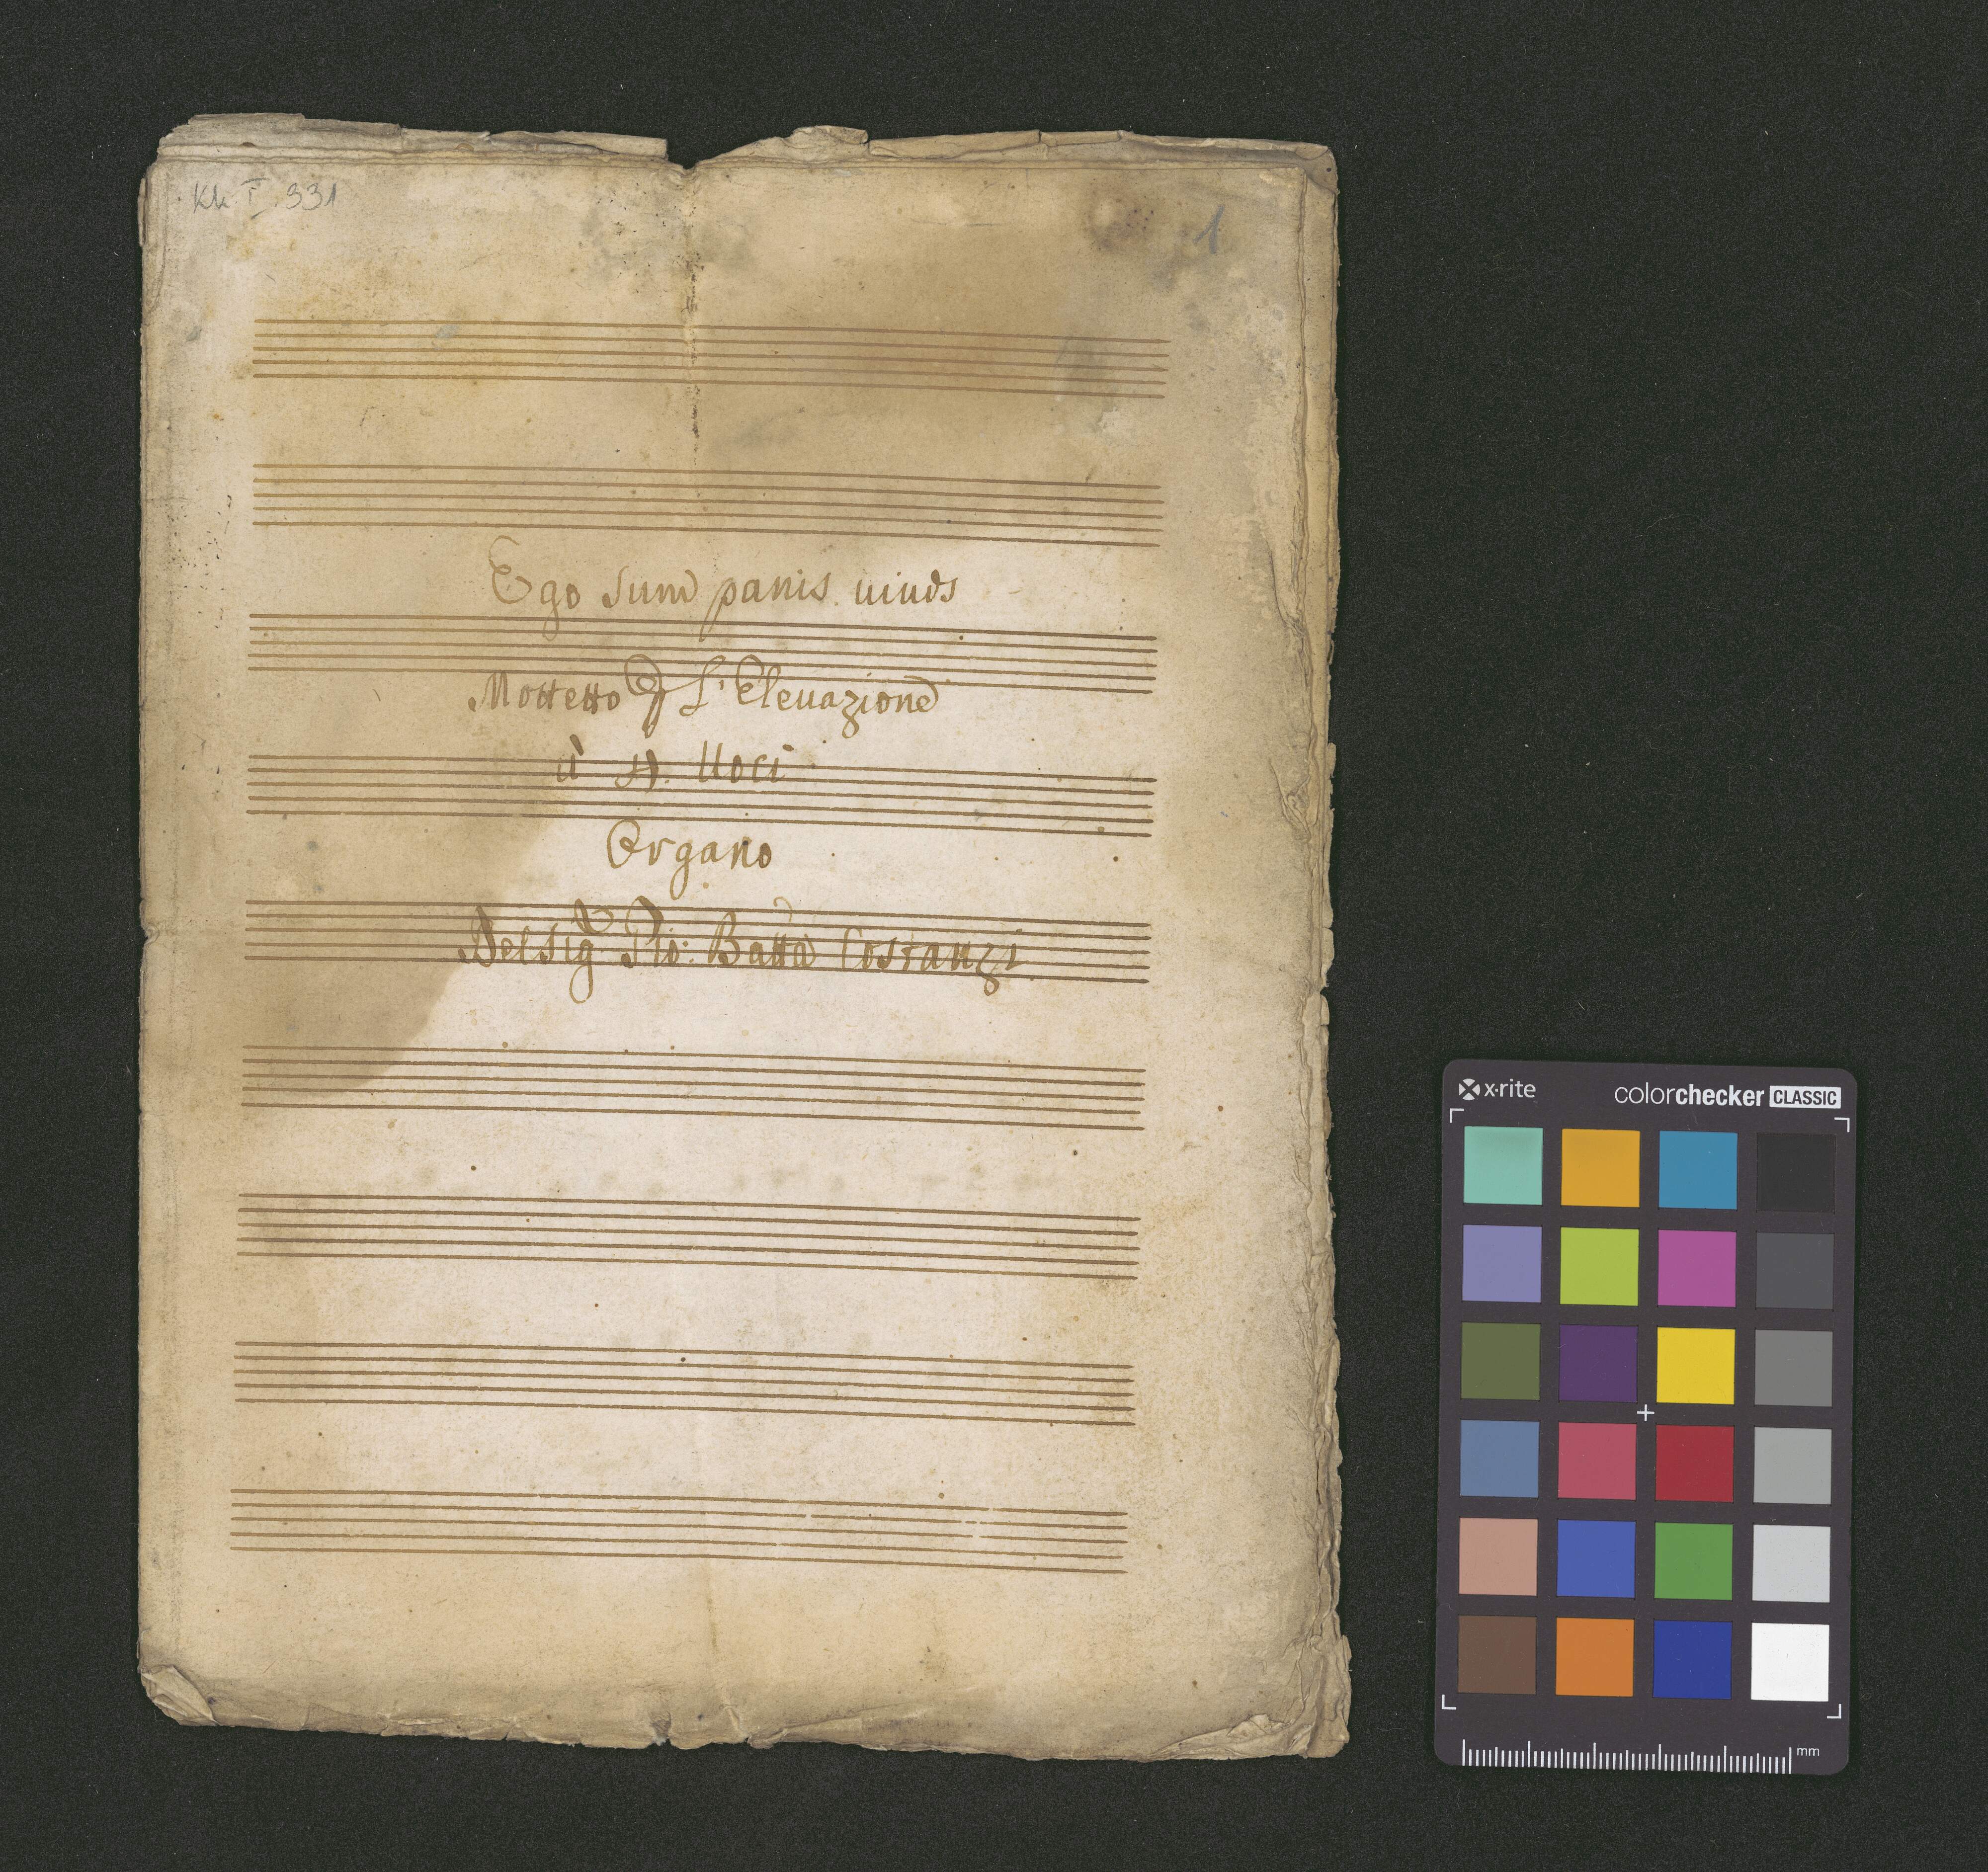 Kk. I. 331
1
Ego sum panis uiuus
Mottetto p L'Eleuazione
à 4. Uoci
Organo
Del Sig.r Gio: Batta Costanzi
x-rite
colorchecker CLASSIC
mm